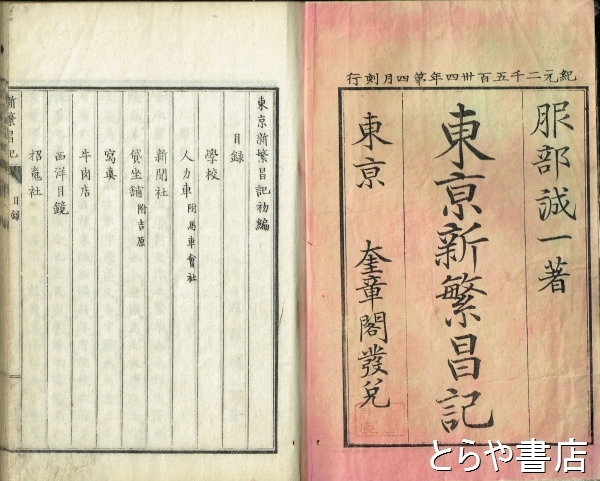 紀元二千五百卅四年第四月刻行
服部誠一著
東亰新繁昌記
東亰 奎章閣發兌
東京新繁昌記初編
目録
學校
人力車 附馬車會社
新聞社
貸坐舗 附吉原
寫真
牛肉店
西洋目鏡
招魂社
新繁昌記 目録
とらや書店